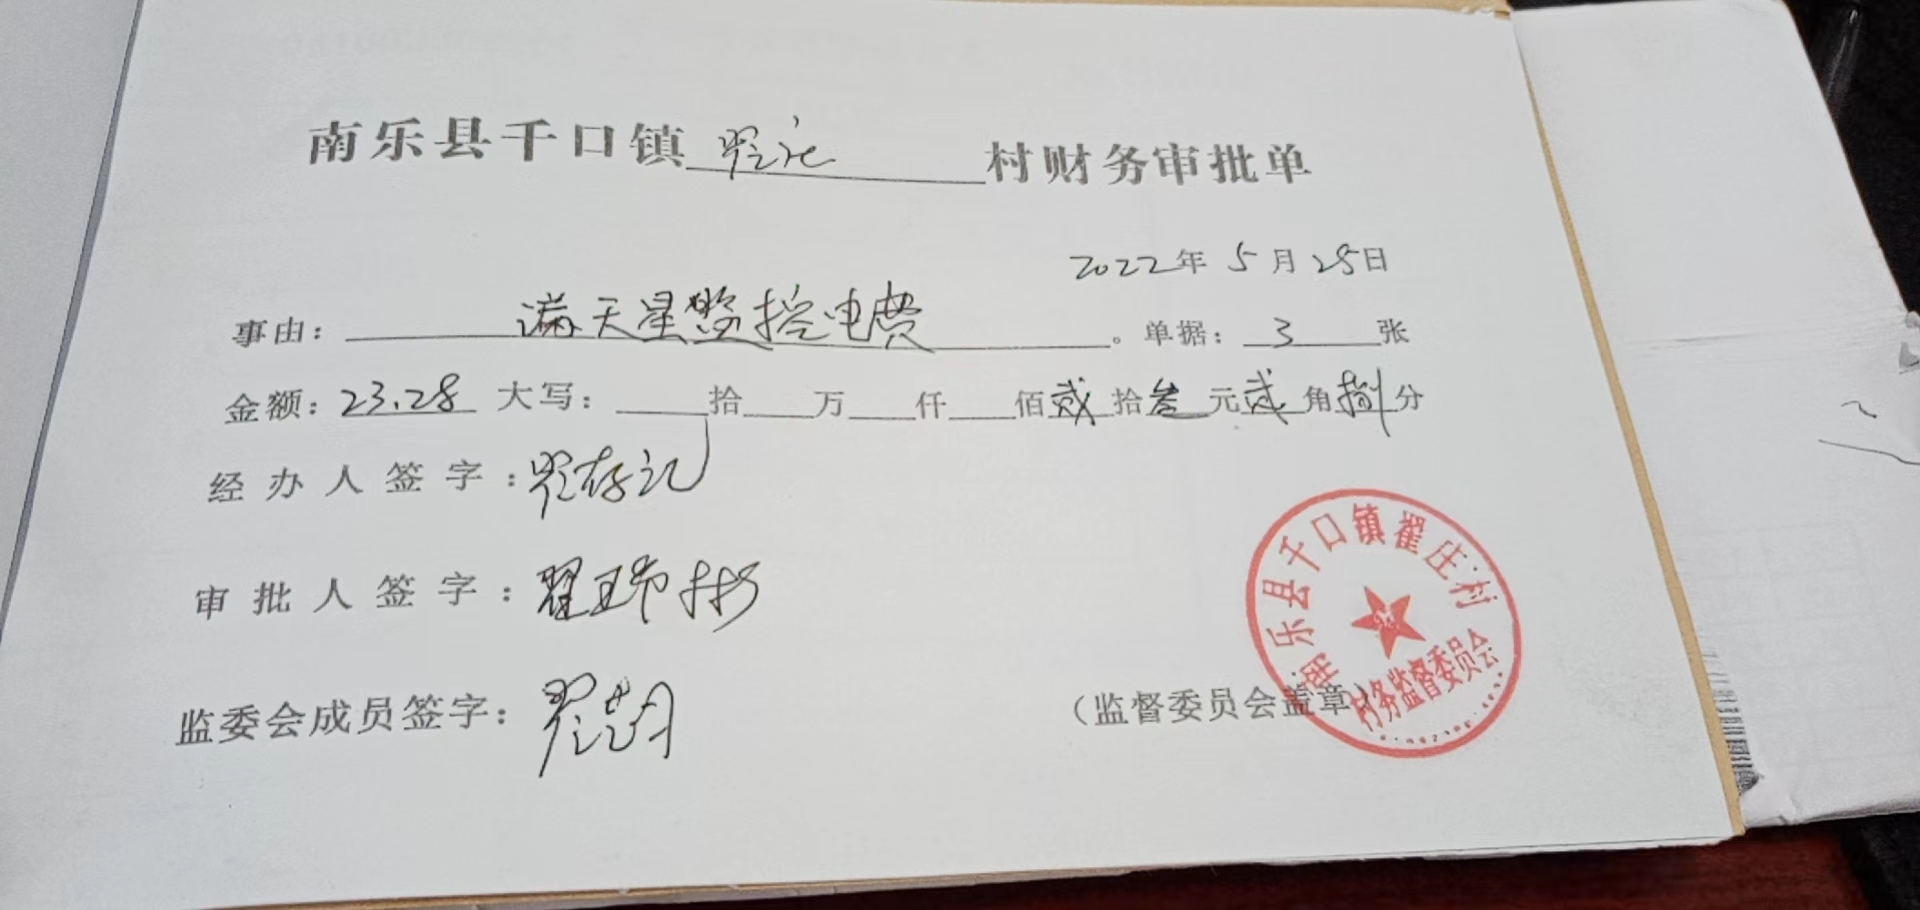 南乐县千口镇翟庄村财务审批单
2022年5月25日
事由：满天星监控电费。单据：3张
金额：23.28 大写：拾 万 仟 佰贰拾叁元贰角捌分
经办人签字：翟存记
审批人签字：翟瑞彬
监委会成员签字：翟
（监督委员会盖章）
南乐县千口镇翟庄村
村务监督委员会